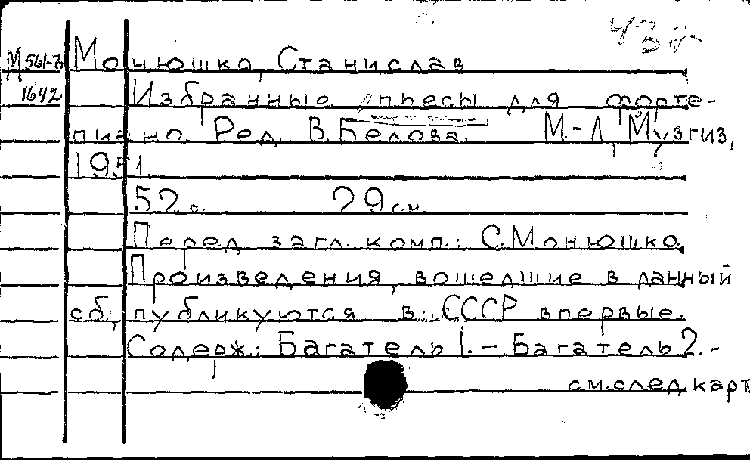 43
М 561-3 Монюшко, Станислав
1642 Избранные пьесы для форте-
пиано. Ред. В. Белова. М.-Л., Музгиз,
1951
52 с. 29 см.
Перед загл. комп.: С. Монюшко.
Произведения, вошедшие в данный
сб., публикуются в СССР впервые.
Содерж.: Багатель 1. - Багатель 2. -
см. след карт